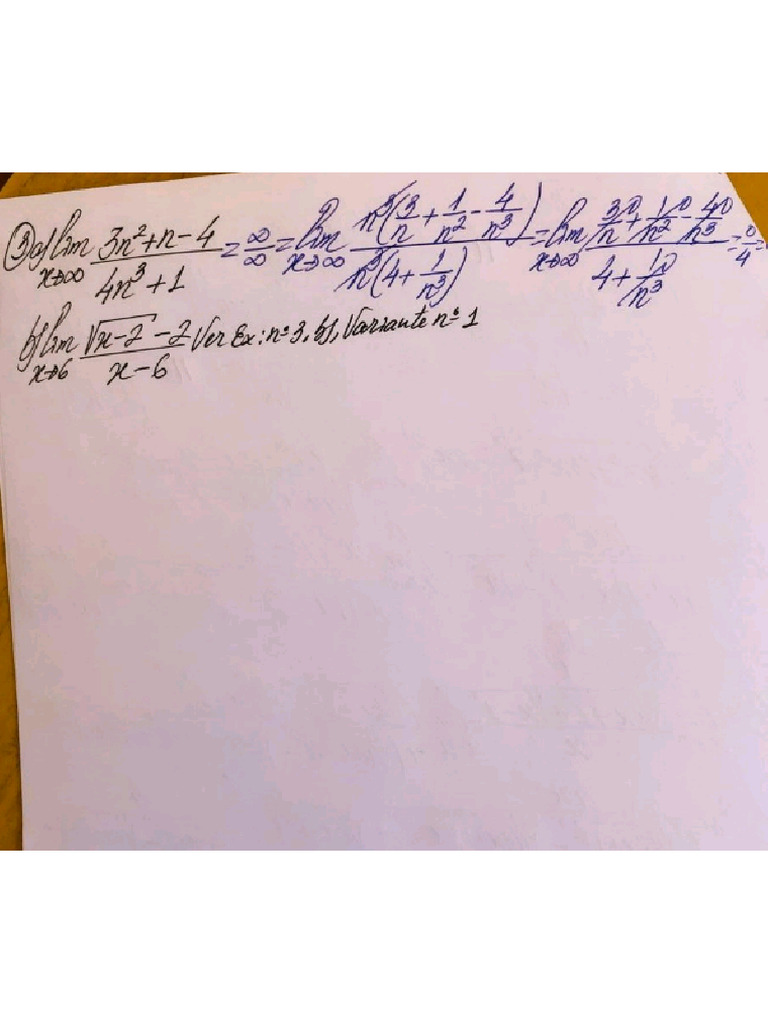 3) a) lim x→∞ (3n²+n-4)/(4n³+1) = ∞/∞ = lim x→∞ n³(3/n + 1/n² - 4/n³)/n³(4 + 1/n³) = lim x→∞ (3/n⁰ + 1/n²⁰ - 4/n³⁰)/(4 + 1/n³⁰) = 0/4 =
b) lim x→6 (√(x-2) - 2)/(x-6) Ver Ex: nº 3, b), Variante nº 1